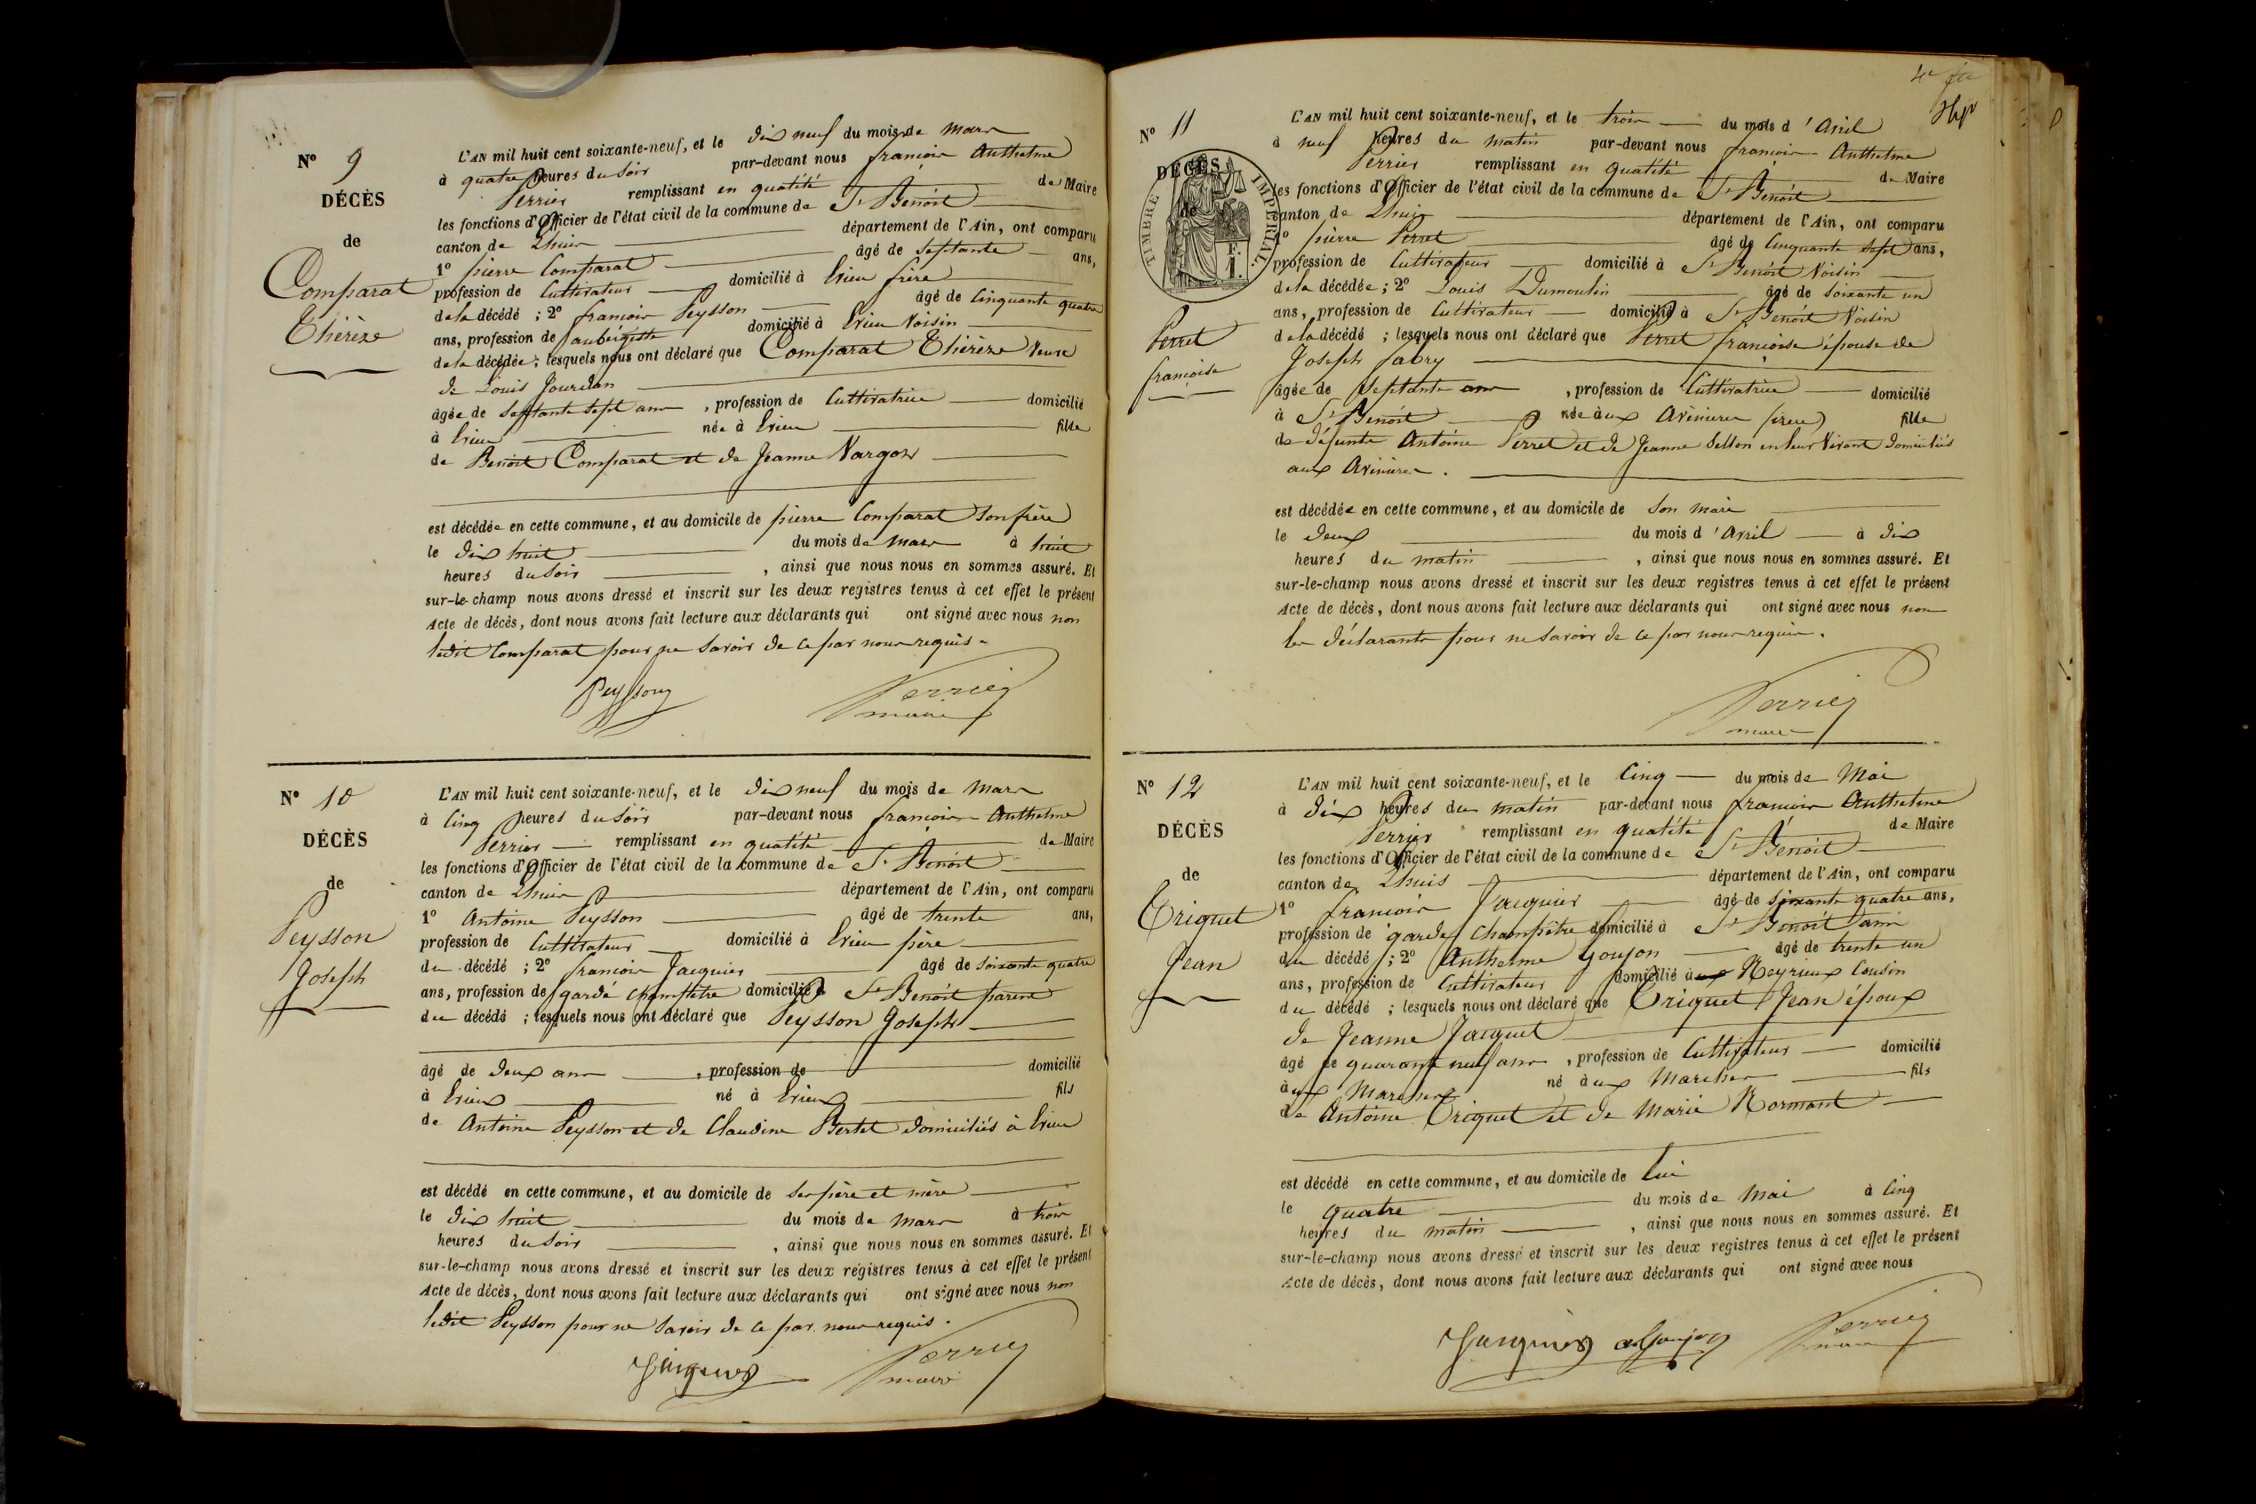 N° 9
DÉCÈS
de
Comparat
Thérèze
L'AN mil huit cent soixante-neuf, et le dix neuf du mois de mars
à quatre heures du soir par-devant nous françois Anthelme
Perrier remplissant en qualité de Maire
les fonctions d'Officier de l'état civil de la commune de St Benoît
canton de Lhuis département de l'Ain, ont comparu
1° pierre Comparat âgé de septante ans,
profession de Cultivateur domicilié à Evieu frère
de la décédé ; 2° françois Peysson âgé de cinquante quatre
ans, profession de aubergiste domicilié à Evieu Voisin
de la décédée ; lesquels nous ont déclaré que Comparat Thérèze Veuve
de Louis Jourdan
âgée de septante sept ans , profession de Cultivatrice domicilié
à Evieu née à Evieu fille
de Benoit Comparat et de Jeanne
est décédée en cette commune, et au domicile de pierre Comparat son frère
le dix huit du mois de mars à huit
heures du soir , ainsi que nous nous en sommes assuré. Et
sur-le-champ nous avons dressé et inscrit sur les deux registres tenus à cet effet le présent
Acte de décès, dont nous avons fait lecture aux déclarants qui ont signé avec nous non
ledit Comparat pour ne savoir de ce par nous requis.
Peysson Perrier
maire
N° 10
DÉCÈS
de
Peysson
Joseph
L'AN mil huit cent soixante-neuf, et le dix neuf du mois de mars
à cinq heures du soir par-devant nous françois Anthelme
Perrier remplissant en qualité de Maire
les fonctions d'Officier de l'état civil de la commune de St Benoit
canton de Lhuis département de l'Ain, ont comparu
1° Antoine Peysson âgé de trente ans,
profession de Cultivateur domicilié à Evieu père
du décédé ; 2° françois Jacquier âgé de soixante quatre
ans, profession de garde champêtre domicilié à St Benoit parent
du décédé ; lesquels nous ont déclaré que Peysson Joseph
âgé de deux ans , profession de domicilié
à Evieu né à Evieu fils
de Antoine Peysson et de Claudine Bertet domiciliés à Evieu
est décédé en cette commune, et au domicile de ses père et mère
le dix huit du mois de mars à trois
heures du soir , ainsi que nous nous en sommes assuré. Et
sur-le-champ nous avons dressé et inscrit sur les deux registres tenus à cet effet le présent
Acte de décès, dont nous avons fait lecture aux déclarants qui ont signé avec nous non
ledit Peysson pour ne savoir de ce par nous requis.
Jacquier Perrier
maire
N° 11
DÉCÈS
de
TIMBRE IMPÉRIAL
F.
1.
Perret
françoise
L'AN mil huit cent soixante-neuf, et le trois du mois d'Avril
à neuf heures du matin par-devant nous françois Anthelme
Perrier remplissant en qualité de Maire
les fonctions d'Officier de l'état civil de la commune de St Benoit
canton de Lhuis département de l'Ain, ont comparu
1° pierre Perret âgé de cinquante sept ans,
profession de Cultivateur domicilié à St Benoit Voisin
de la décédée ; 2° Louis Dumoulin âgé de soixante un
ans, profession de Cultivateur domicilié à St Benoit Voisin
de la décédé ; lesquels nous ont déclaré que Perret françoise épouse de
Joseph fabry
âgée de septante ans , profession de Cultivatrice domicilié
à St Benoit née aux Avinières (isère) fille
de défunts Antoine Perret et de Jeanne en leur Vivant domiciliés
aux Avinières.
est décédée en cette commune, et au domicile de son mari
le deux du mois d'Avril à dix
heures du matin , ainsi que nous nous en sommes assuré. Et
sur-le-champ nous avons dressé et inscrit sur les deux registres tenus à cet effet le présent
Acte de décès, dont nous avons fait lecture aux déclarants qui ont signé avec nous non
les déclarants pour ne savoir de ce par nous requis.
Perrier
maire
N° 12
DÉCÈS
de
Triquet
Jean
L'AN mil huit cent soixante-neuf, et le cinq du mois de Mai
à dix heures du matin par-devant nous françois Anthelme
Perrier remplissant en qualité de Maire
les fonctions d'Officier de l'état civil de la commune de St Benoit
canton de Lhuis département de l'Ain, ont comparu
1° françois Jacquier âgé de soixante quatre ans,
profession de garde champêtre domicilié à St Benoit ami
du décédé ; 2° Anthelme Goujon âgé de trente un
ans, profession de Cultivateur domicilié aux Neyrieux Cousin
du décédé ; lesquels nous ont déclaré que Triquet Jean époux
de Jeanne Jacquet
âgé de quarante neuf ans , profession de Cultivateur domicilié
aux Marches né aux Marches fils
de Antoine Triquet et de Marie Normant
est décédé en cette commune, et au domicile de lui
le quatre du mois de Mai à cinq
heures du matin , ainsi que nous nous en sommes assuré. Et
sur-le-champ nous avons dressé et inscrit sur les deux registres tenus à cet effet le présent
Acte de décès, dont nous avons fait lecture aux déclarants qui ont signé avec nous
Jacquier aGoujon Perrier
maire